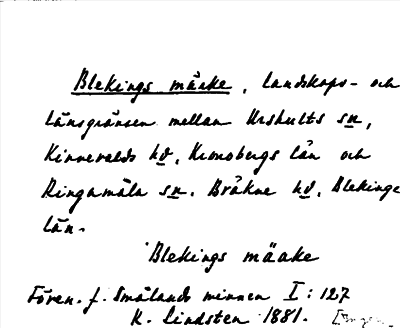 Blekings määke, landskaps- och
länsgränsen mellan Urshults sn,
Kinnevalds hd, Kronobergs län och
Ringamåla sn. Bräkne hd, Blekinge
län.
Blekings määke
Fören. f. Smålands minnen I: 127
K. Lindsten 1881.